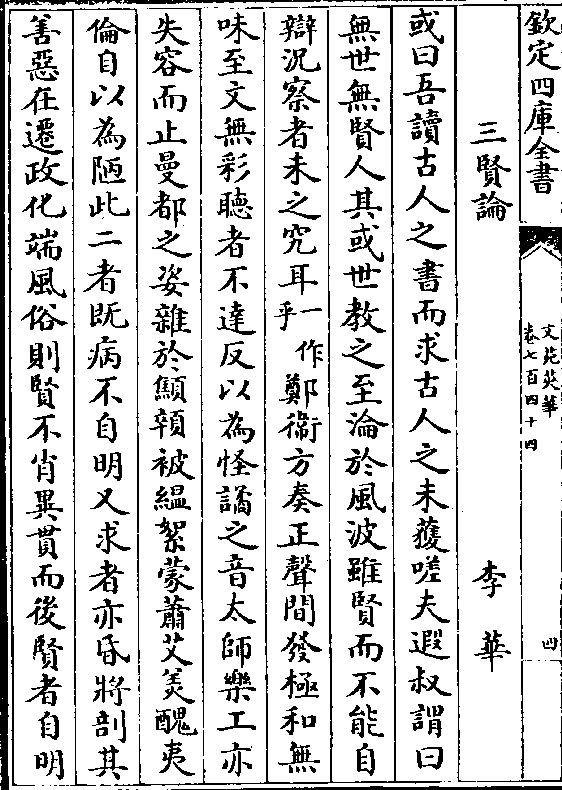 欽定四庫全書
文苑英華
卷七百四十四
四
三賢論
李華
或曰吾讀古人之書而求古人之未獲嗟夫遐叔謂曰
無世無賢人其或世教之至淪於風波雖賢而不能自
辯況察者未之究耳一作乎鄭衞方奏正聲間發極和無
味至文無彩聽者不達反以為怪譎之音太師樂工亦
失容而止曼都之姿雜於顦顇被緼絮蒙蕭艾美醜夷
倫自以為陋此二者既病不自明又求者亦昏將剖其
善惡在遷政化端風俗則賢不肖異貫而後賢者自明